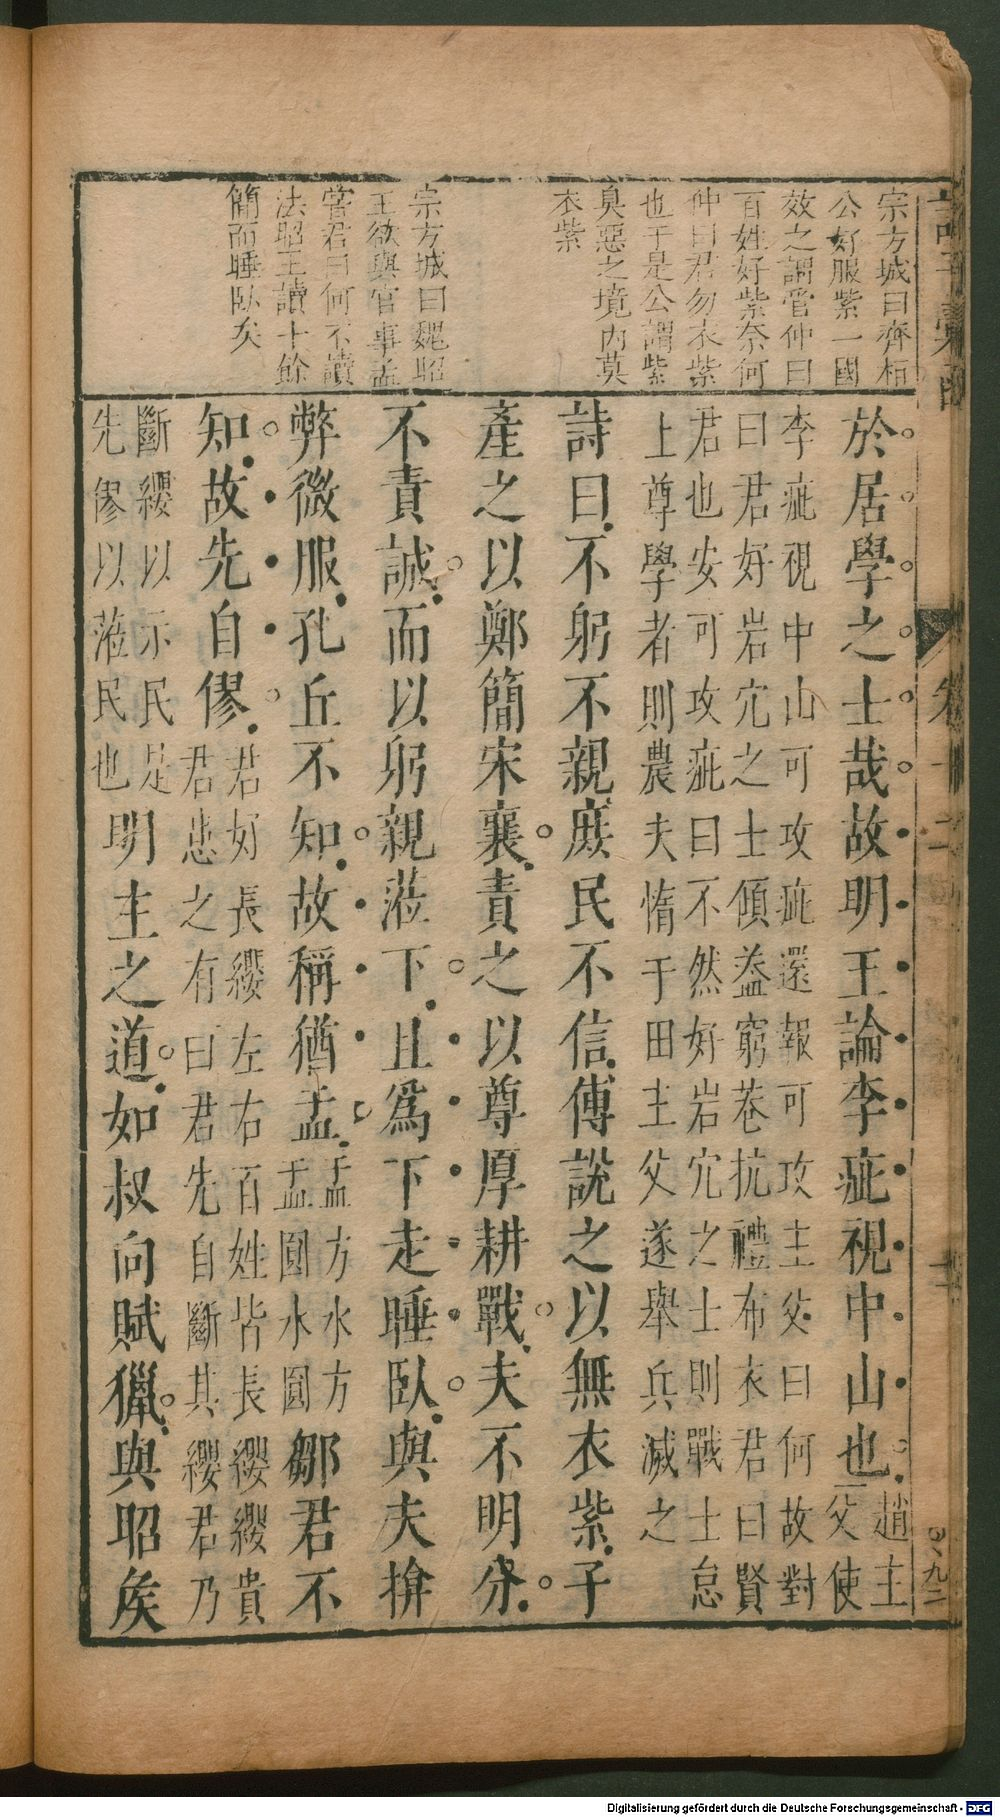 宗方城曰齊桓
公好服紫一國
效之謂管仲曰
百姓好紫奈何
仲曰君勿衣紫
也于是公謂紫
臭惡之境內莫
衣紫
宗方城曰魏昭
王欲與官事孟
嘗君曰何不讀
法昭王讀十餘
簡而睡臥矣
於居學之士哉故明王論李疵視中山也
趙主
父使
李疵視中山可攻疵還報可攻主父曰何故對
曰君好岩穴之士傾葢窮巷抗禮布衣君曰賢
君也安可攻疵曰不然好岩穴之士則戰士怠
上尊學者則農夫惰于田主父遂舉兵滅之
詩曰不躬不親庶民不信傅說之以無衣紫子
產之以鄭簡宋襄責之以尊厚耕戰夫不明分
不責誠而以躬親蒞下且爲下走睡臥與夫揜
弊微服孔丘不知故稱猶盂
盂方水方
盂圓水圓
鄒君不
知故先自僇
君好長纓左右百姓皆長纓纓貴
君患之有曰君先自斷其纓君乃
斷纓以示民是
先僇以蒞民也
明主之道如叔向賦獵與昭矦
卷十二
九二
Digitalisierung gefördert durch die Deutsche Forschungsgemeinschaft - DFG